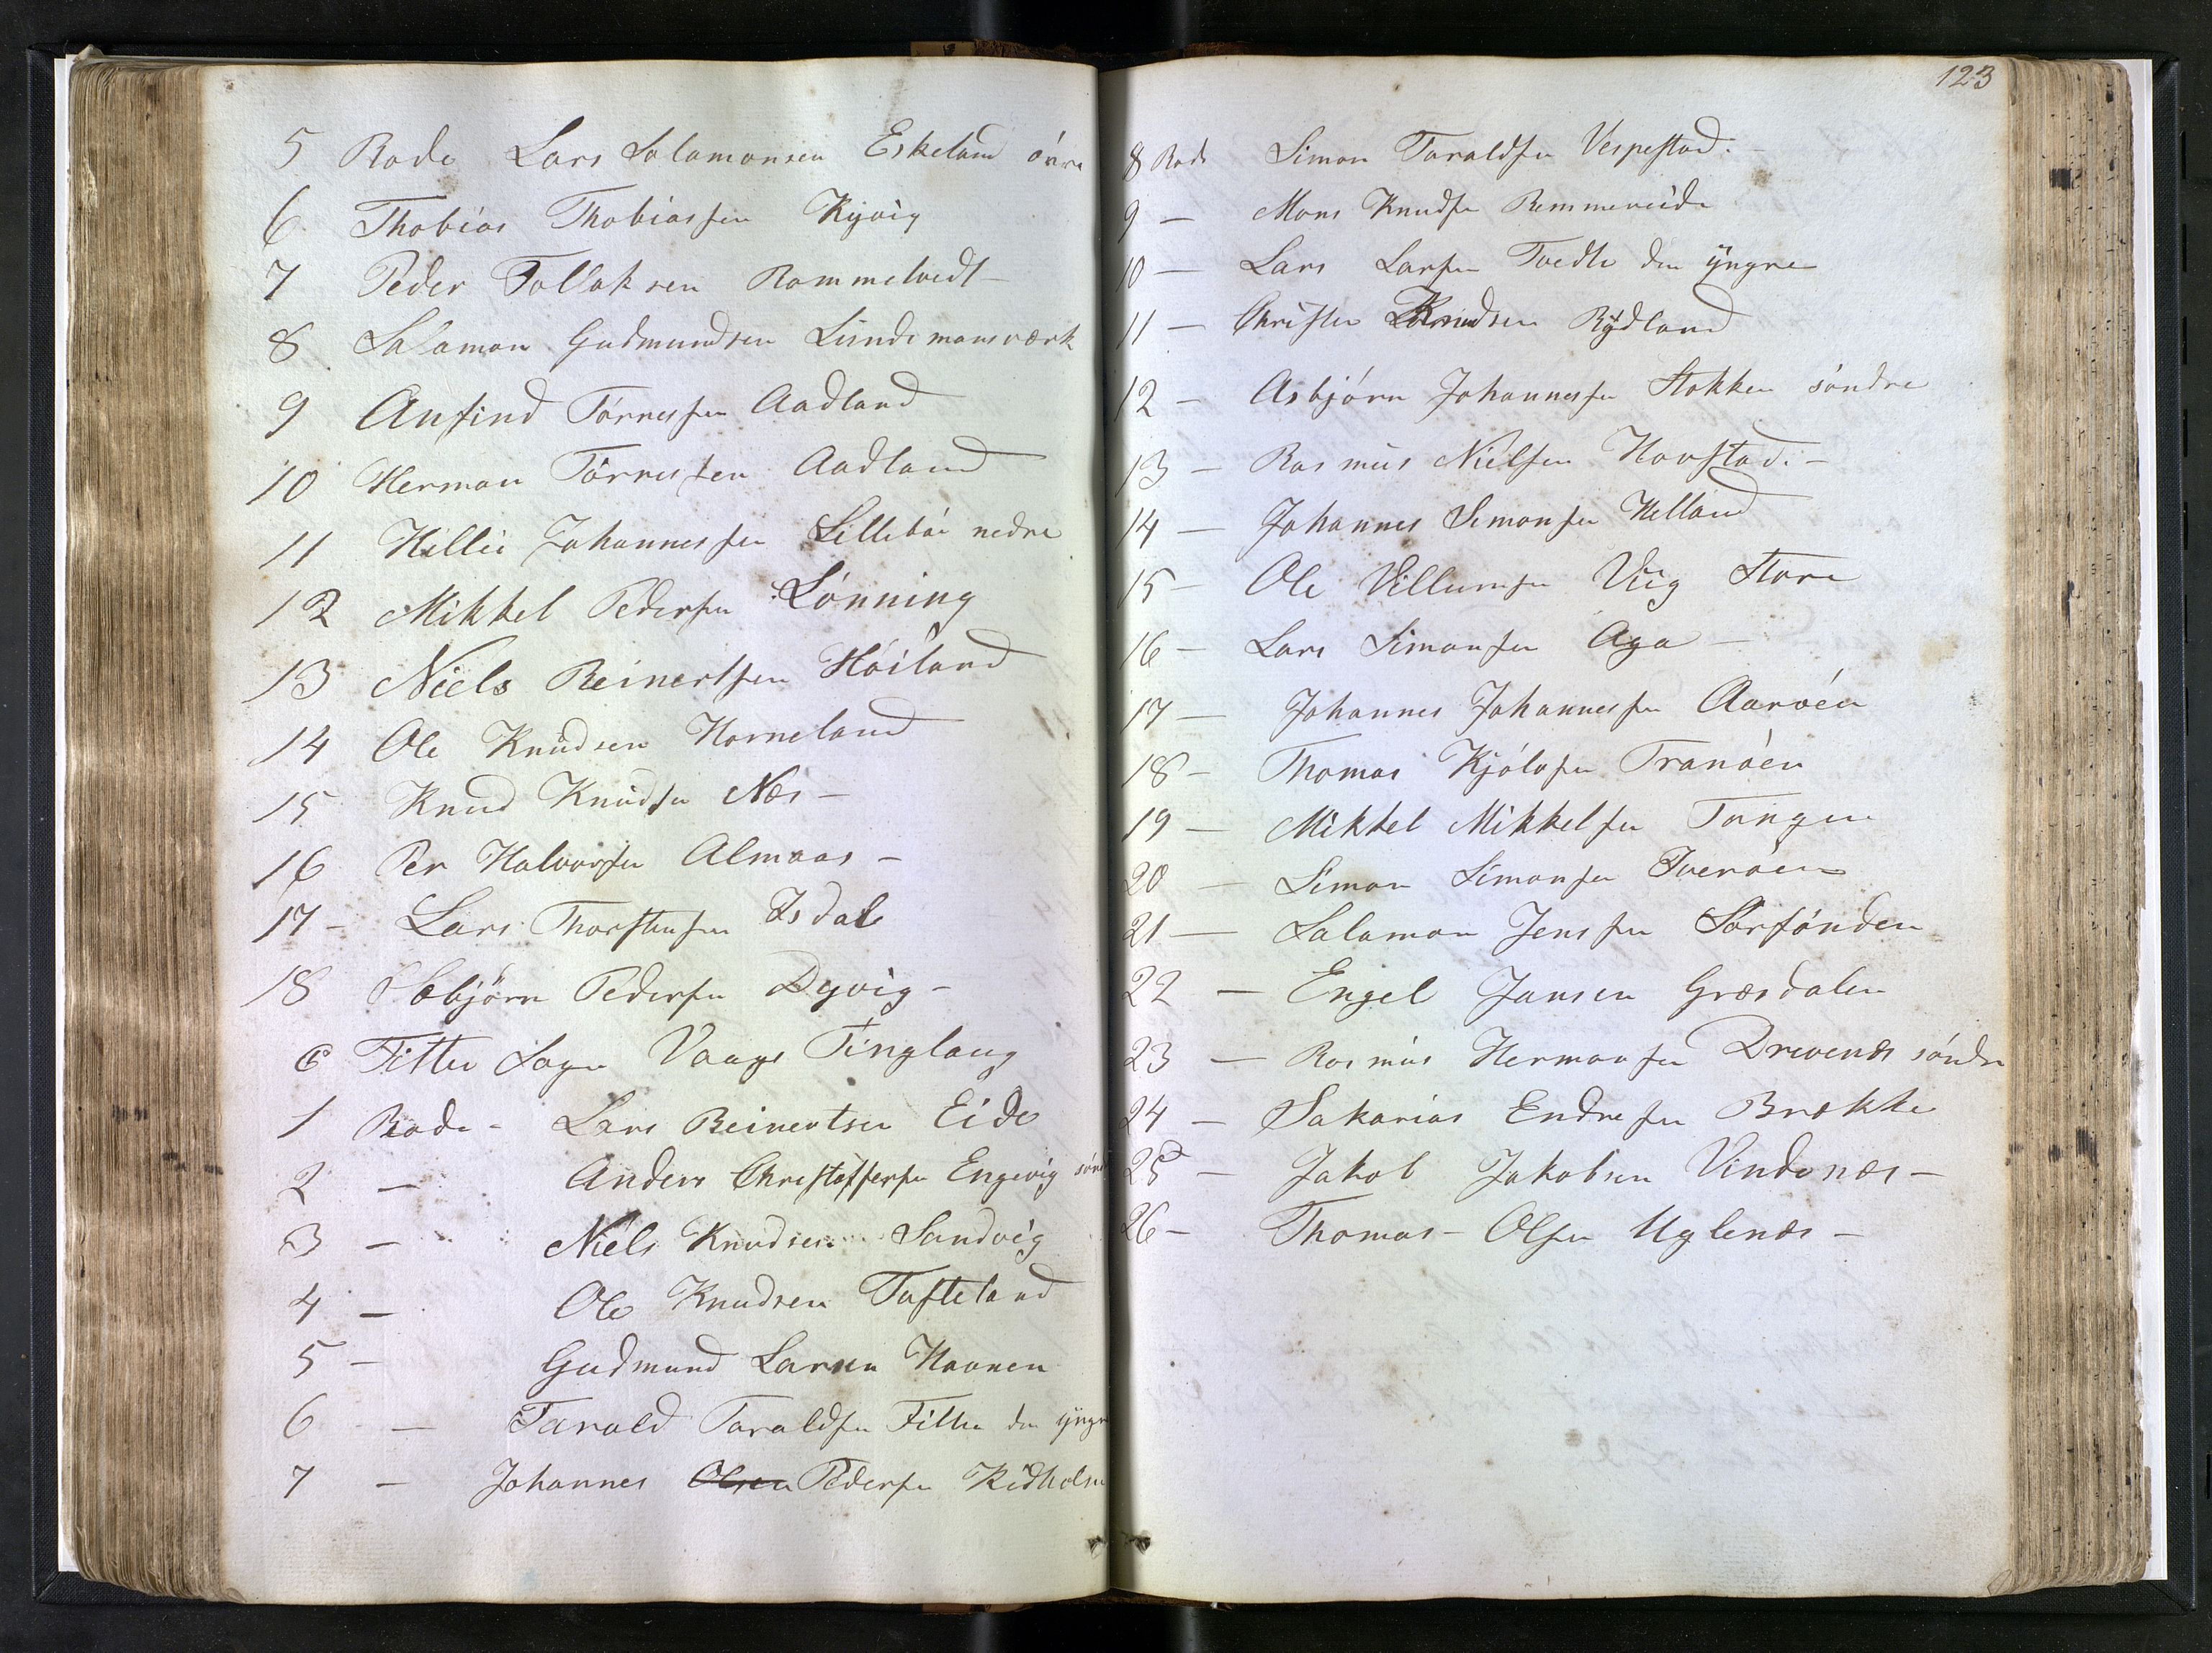 5 Rode Lars Salamonsen Eskeland övre
6 Thobias Thobiassen Kyvig
7 Peder Tollaksen Rommetvedt -
8 Salamon Gudmundsen Lundemansværk
9 Anfind Törressen Aadland
10 Herman Törressen Aadland
11 Johannessen Lillebö nedre
12 Mikkel Pedersen Lönning
13 Niels Reinertsen Höiland
14 Ole Knudsen Horneland
15 Knud Knudsen Næs -
16 Per Halvorsen Almaas -
17 - Lars Thorstensen Isdal
18 Pedersen Dyvig -
6 Fitter Sogn Vaags Tinglaug
1 Rode - Lars Reinertsen Eide
2 - Anders Christoffersen Engevig
3 - Niels Knudsen Sandvig
4 - Ole Knudsen Tufteland
5 - Gudmund Larsen Havnen
6 - Tarald Taraldsen Fitter den yngre
7 - Johannes Olsen Pedersen
123
8 Rode Simon Taraldsen Vespestad. -
9 - Mons Knudsen Remmereide
10 - Lars Larsen Tvedte den yngre
11 - Christen Knudsen Rydland
12 - Asbjörn Johannessen Stokken söndre
13 - Rasmus Nielsen Hovstad. -
14 - Johannes Simonsen Helland
15 - Ole Villumsen Viig Store
16 - Lars Simonsen Aga -
17 - Johannes Johannessen Aaröen
18 - Thomas Tranöen
19 - Mikkel Mikkelsen Tangen
20 - Simon Simonsen Iveröen
21 - Salamon Jenssen
22 - Engel Jansen Græsdalen
23 - Rasmus Hermansen Drevenæs söndre
24 - Sakarias Endresen Brække
25 - Jakob Jakobsen Vindenæs -
26 - Thomas - Olsen Uglenæs -